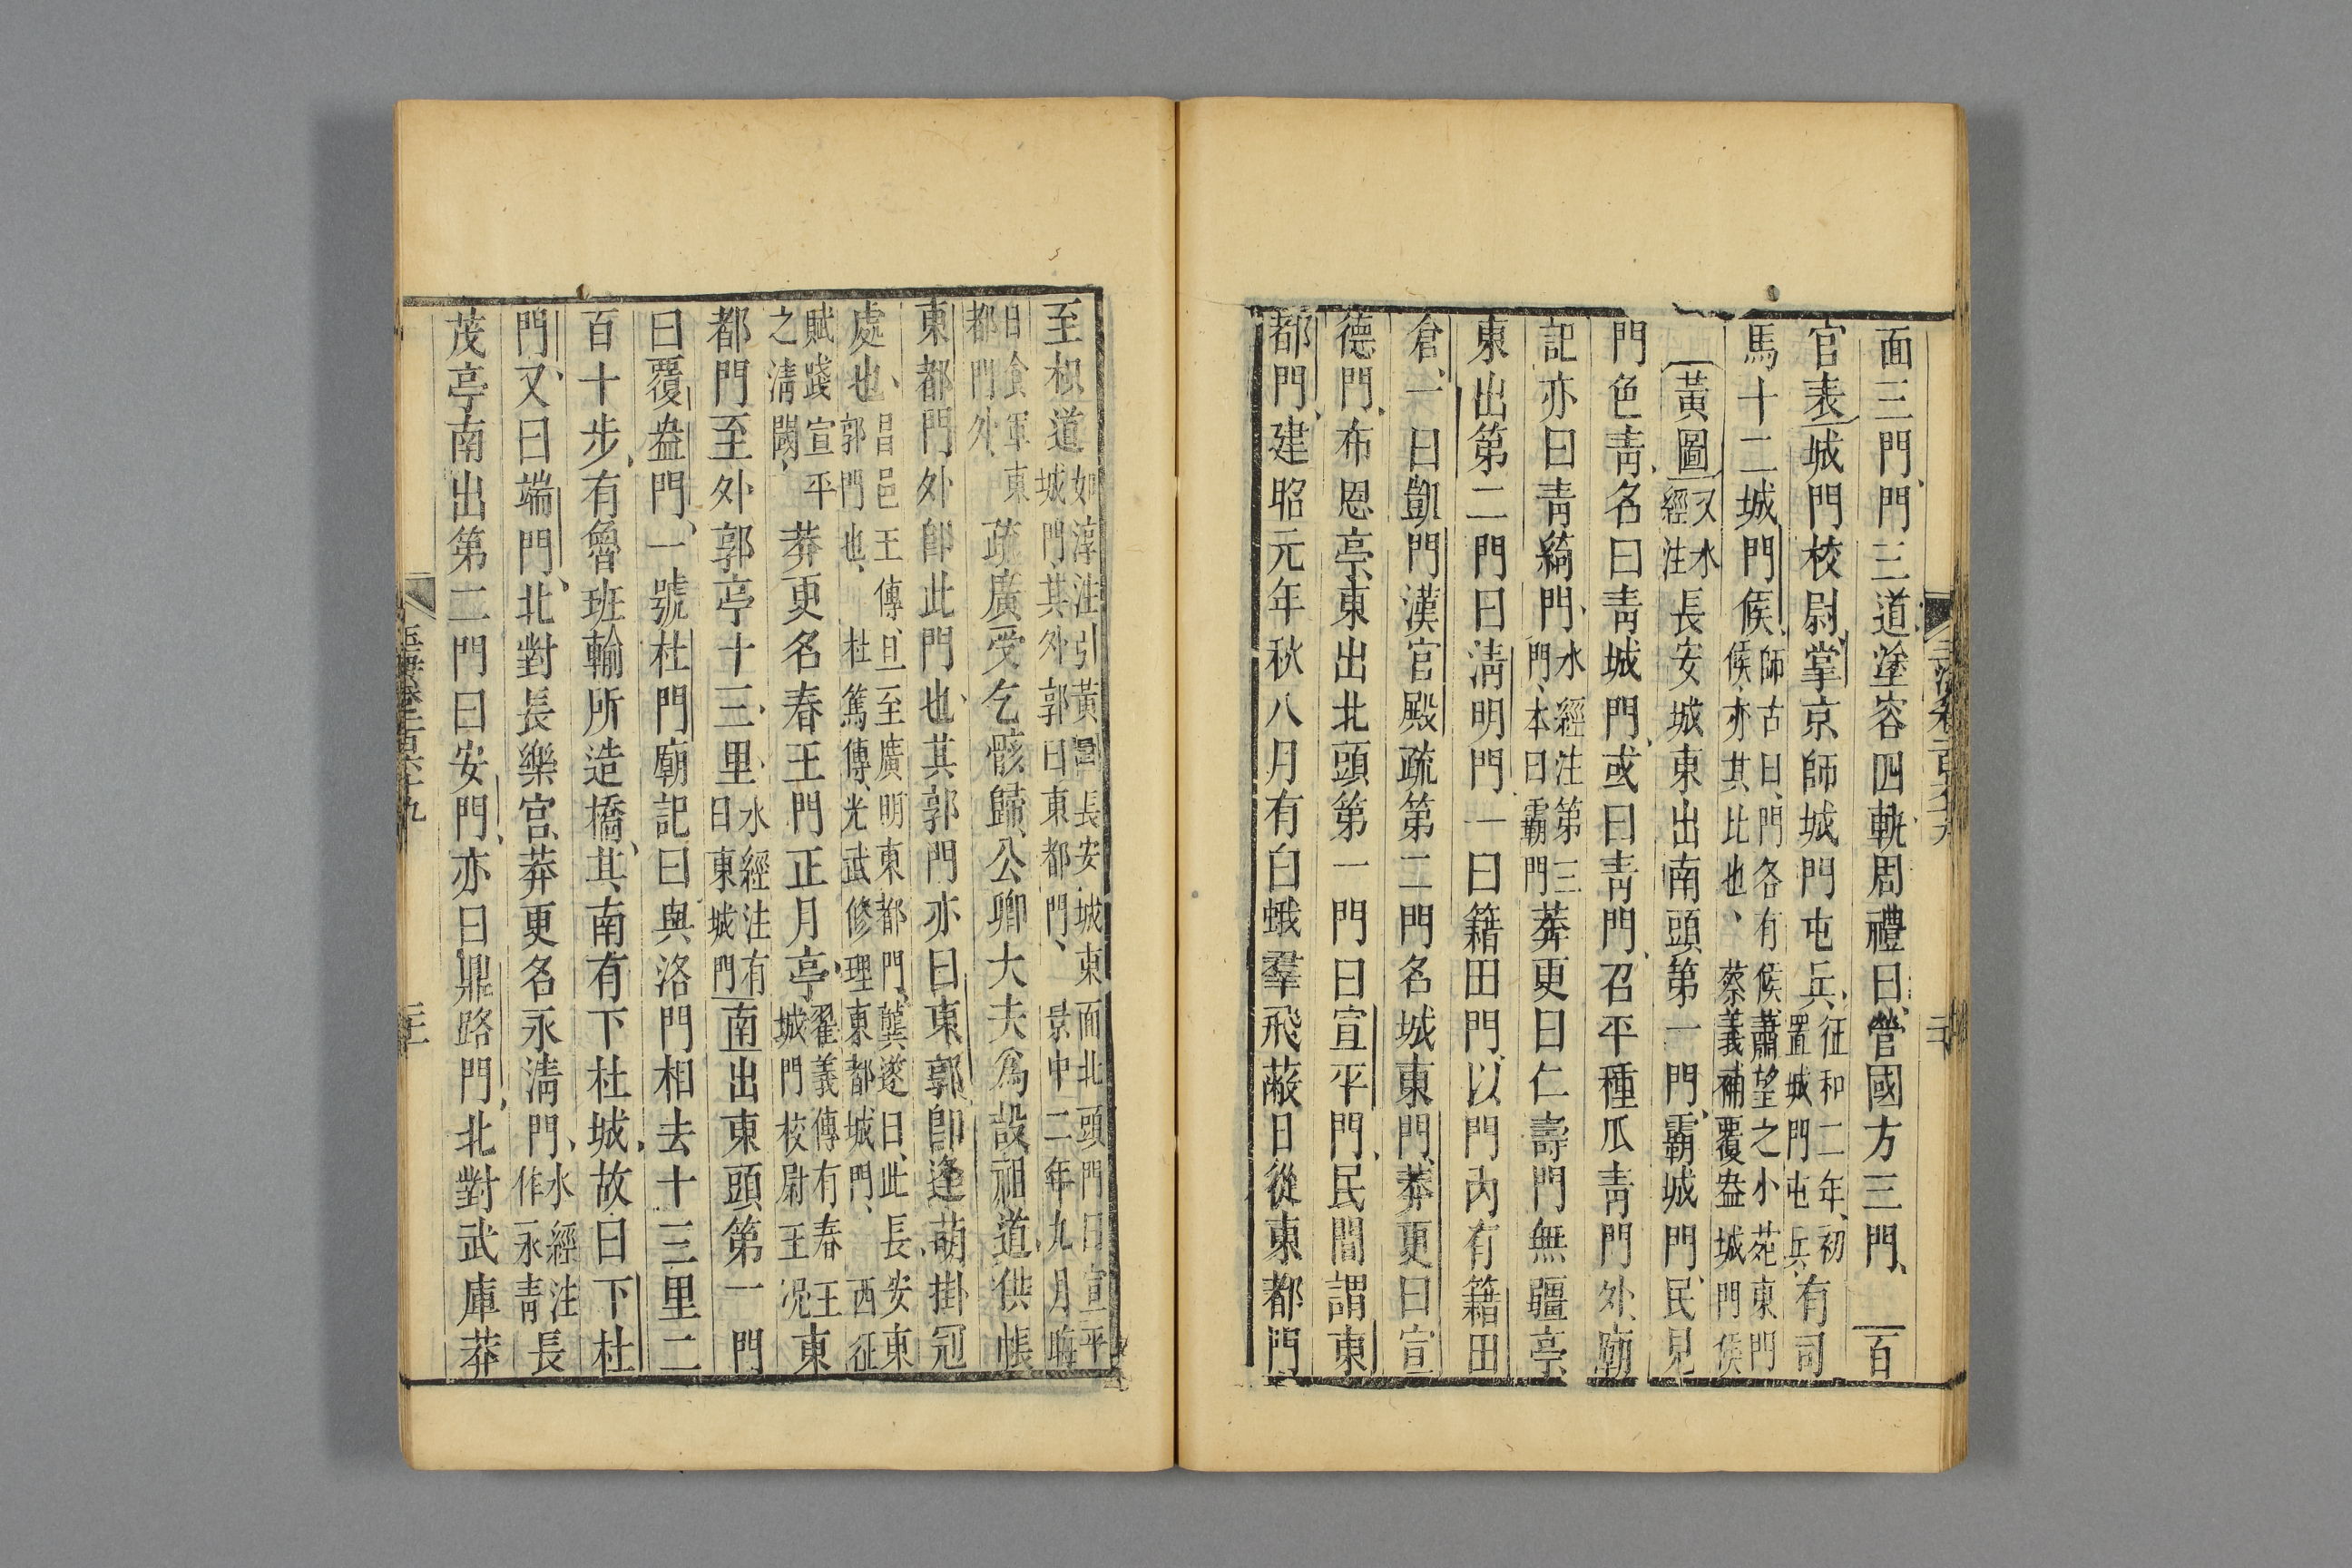 面三門、門三道、塗容四軌、周禮曰、營國方三門、百
官表城門校尉、掌京師城門屯兵、征和二年、初置城門屯兵、有司
馬十二城門候、師古曰、門各有候、蕭望之小苑東門候、亦其比也、蔡義補覆盎城門候
黃圖又水經注長安城東出南頭第一門、霸城門、民見
門色青、名曰青城門、或曰青門、召平種瓜青門外、廟
記亦曰青綺門、水經注第三門、本曰霸門莽更曰仁壽門無疆亭、
東出第二門曰清明門、一曰籍田門、以門內有籍田
倉、一曰凱門漢宮殿疏第二門名城東門、莽更曰宣
德門、布恩亭、東出北頭第一門曰宣平門、民間謂東
都門、建昭元年秋八月有白蛾羣飛蔽日從東都門
玉海卷一百六十九
至枳道如淳注引黃圖長安城東面北頭門曰宣平城門其外郭曰東都門、景中二年九月晦
日食軍東都門外、疏廣受乞骸歸、公卿大夫爲設祖道、供帳
東都門外卽此門也、其郭門亦曰東郭、卽逢萌掛冠
處也、昌邑王傳、旦至廣明東都門、龔遂曰、此長安東郭門也、杜篤傳、光武修理東都城門、西征
賦踐宣平之清閾、莽更名春王門正月亭、翟義傳有春王城門校尉王況東
都門至外郭亭十三里、水經注有曰東城門南出東頭第一門
曰覆盎門、一號杜門廟記曰與洛門相去十三里二
百十步、有魯班輸所造橋、其南有下杜城、故曰下杜
門、又曰端門、北對長樂宮、莽更名永清門、水經注作永青長
茂亭南出第二門曰安門、亦曰鼎路門、北對武庫莽
玉海卷一百六十九